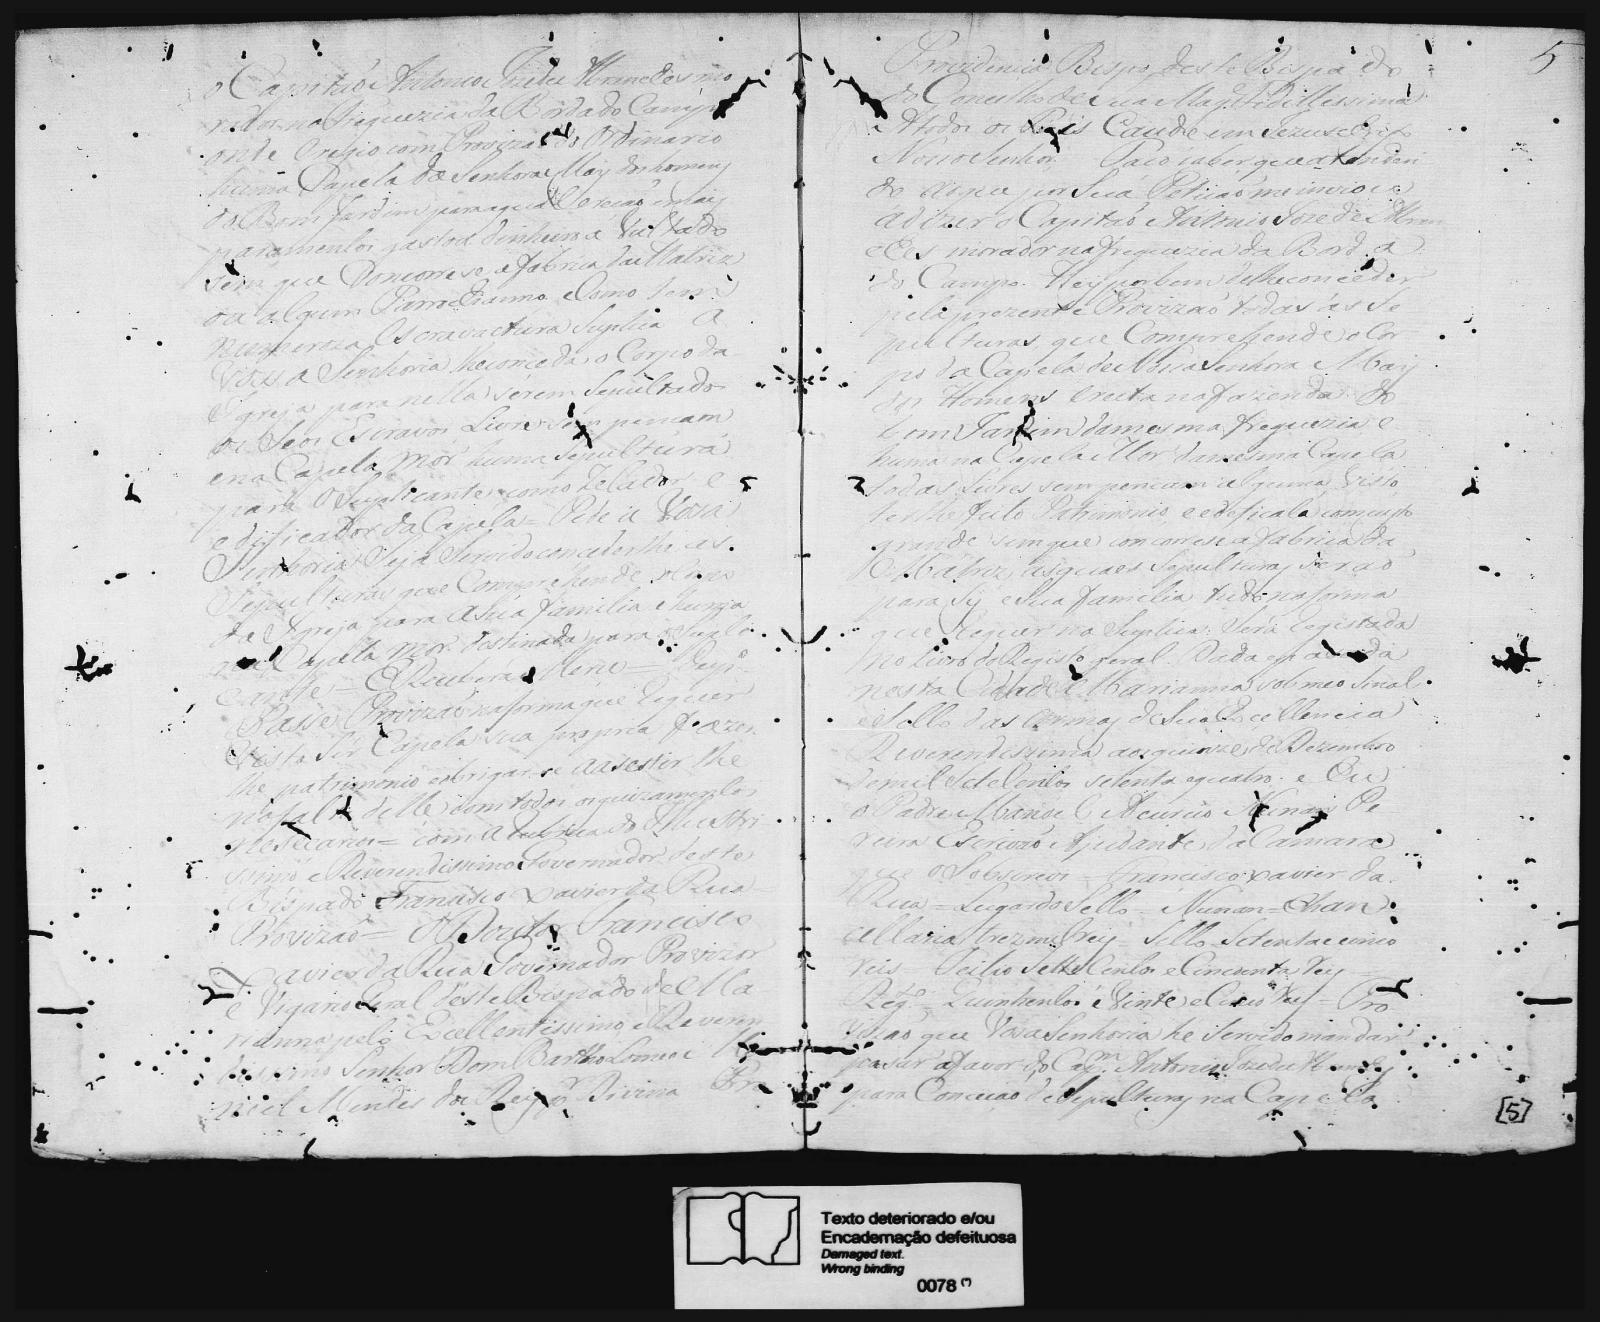 o Capitaó Antonio Joze de Mirandes mo
rador na Freguezia da Borda do Campo
onde eregio com Provizaó do Ordinario
huma Capela da Senhora May dos homeng
do Bom Jardim para a qual ereçaó e mais
paramentos gastou dinheiro a vultado
sem que Concorrese a fabrica da Matriz
ou algum Parrochianno e Como tem
numeroza Escravactura Suplica A
Vossa Senhoria lhe conceda o Corpo da
Igreja para nella serem Sepultados
os Seos Escravos Livres sem pencam
e na Capela mor huma Sepultura
para o Suplicante como Zelador e
edificador da Capela = Pede a Vosa
Senhoria Seja Servido conceder lhe as
Sepulturas que Comprehende o Corpo
da Igreja para a sua familia e huma
na Capela mor destinada para o Supli
cante = E Recebera Merce =
Passe Provizaó na forma que Requer
Vista Ser Capela sua propria fazer
lhe patrimonio e obrigar se a asestir lhe
na falta delle com todos os guizamentos
nesecarios = com a Rubrica do Illustri
simo e Reverendissimo Governador deste
Bispado Francisco Xavier da Rua =
Provizaó = O Doutor Francisco
Xavier da Rua Governador Provizor
e Vigario Geral deste Bispado de Ma
rianna pelo Excellentissimo e Reveren
dissimo Senhor Dom Bartholomeo Ma
noel Mendes dos Reys Divina Pro
5
Providencia Bispo deste Bispado
do Concelho de sua Magestade Fidelissima
A todos os Fieis Caude em Jezus Christo
Nosso Senhor Faco saber que atenden
do ao que por Sua Peticaó me inviou
a dizer o Capitaó Antonio Joze de Miran
des morador na freguezia da Borda
do Campo Hey por bem de lhe conceder
pela prezente Provizaó todas as Se
pulturas que Comprehende o Cor
po da Capela de Nossa Senhora May
dos Homens erecta na fazenda do
bom Jardim da mesma freguezia e
huma na Capela Mor da mesma Capela
todas livres sem pencam alguma visto
ter lhe feito Patrimonio e edeficala com custo
grande sem que concorrese a fabrica da
Matriz as quaes Sepulturas seraó
para Sy e sua familia tudo na forma
que requer na Suplica Será Registada
no livro do Registo geral Dada e pasada
nesta Cidade Marianna sob meo Sinal
e Sello das Armas de Sua Excellencia
Reverendissima aos quinze de Dezembro
de mil Sete Centos setenta e quatro e Eu
o Padre Manoel Acurcio Nunan Pe
reira Escrivaó Ajudante da Camara
que o Sobscrevi = Francisco Xavier da
Rua = Lugar do Sello = Nunan = Chan
cellaria trezentos reis = Sello Setenta e cinco
reis = Feitio Sette Centos e Cincoenta reis =
Regº = Quinhentos e Vinte e Cinco Reis = Pro
vizaó que Vosa Senhoria he Servido mandar
pasar a favor do Capᵐ Antonio Joze de Mirandes
para Conceçaó de Sepulturas na Capela
[5]
Texto deteriorado e/ou
Encadernação defeituosa
Damaged text.
Wrong binding
0078 (*)